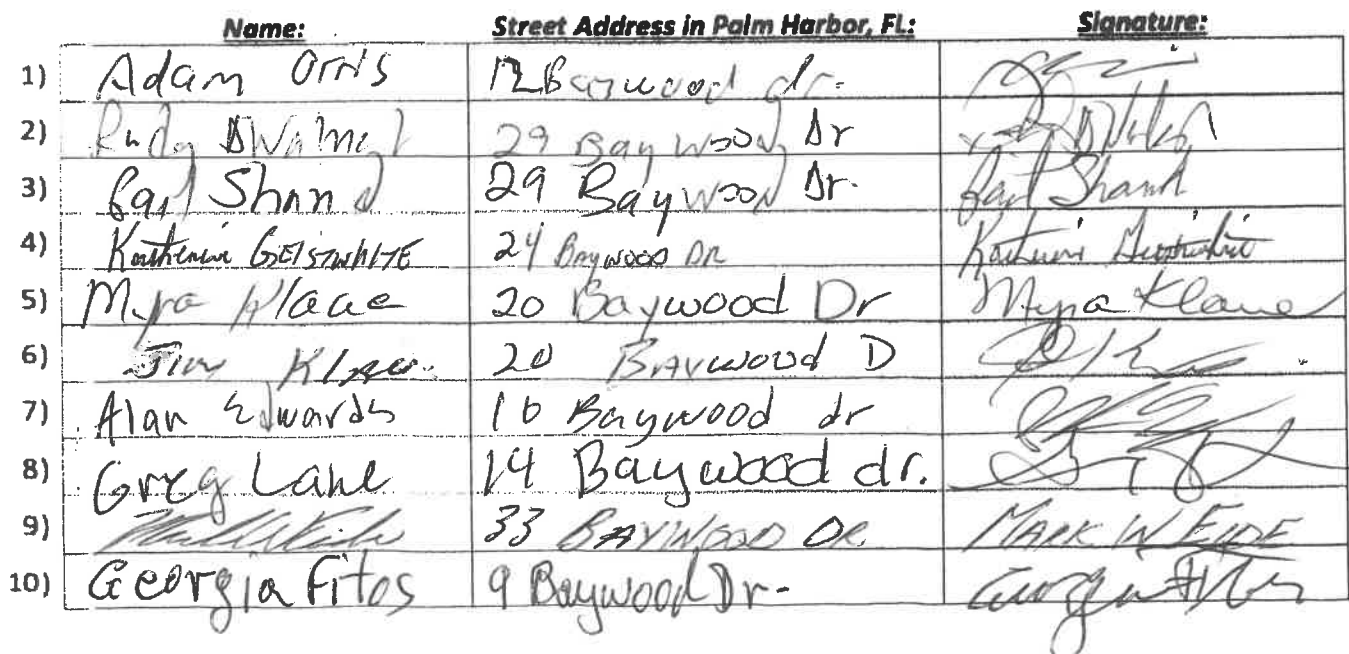 Name: Street Address in Palm Harbor, FL: Signature:
1) Adam Orris 12 Baywood dr.
2) Rudy 29 Baywood Dr
3) Earl Shand 29 Baywood Dr. Earl Shand
4) Katherine GEISTWHITE 24 Baywood DR Katherine Geistwhite
5) Myra Klane 20 Baywood Dr Myra Klane
6) Jim 20 Baywood D
7) Alan Edwards 16 Baywood dr
8) Greg Lane 14 Baywood dr.
9) 33 BAYWOOD DR MARK W EIDE
10) Georgia Fitos 9 Baywood Dr. Georgia Fitos